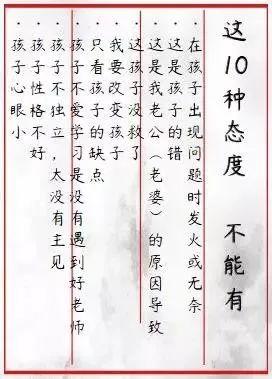 这10种态度 不能有
·在孩子出现问题时发火或无奈
·这是孩子的错
·这是我老公（老婆）的原因导致
·这孩子没救了
·我要改变孩子
·只看孩子的缺点
·孩子不爱学习是没有遇到好老师
·孩子不独立，太没有主见
·孩子性格不好
·孩子心眼小